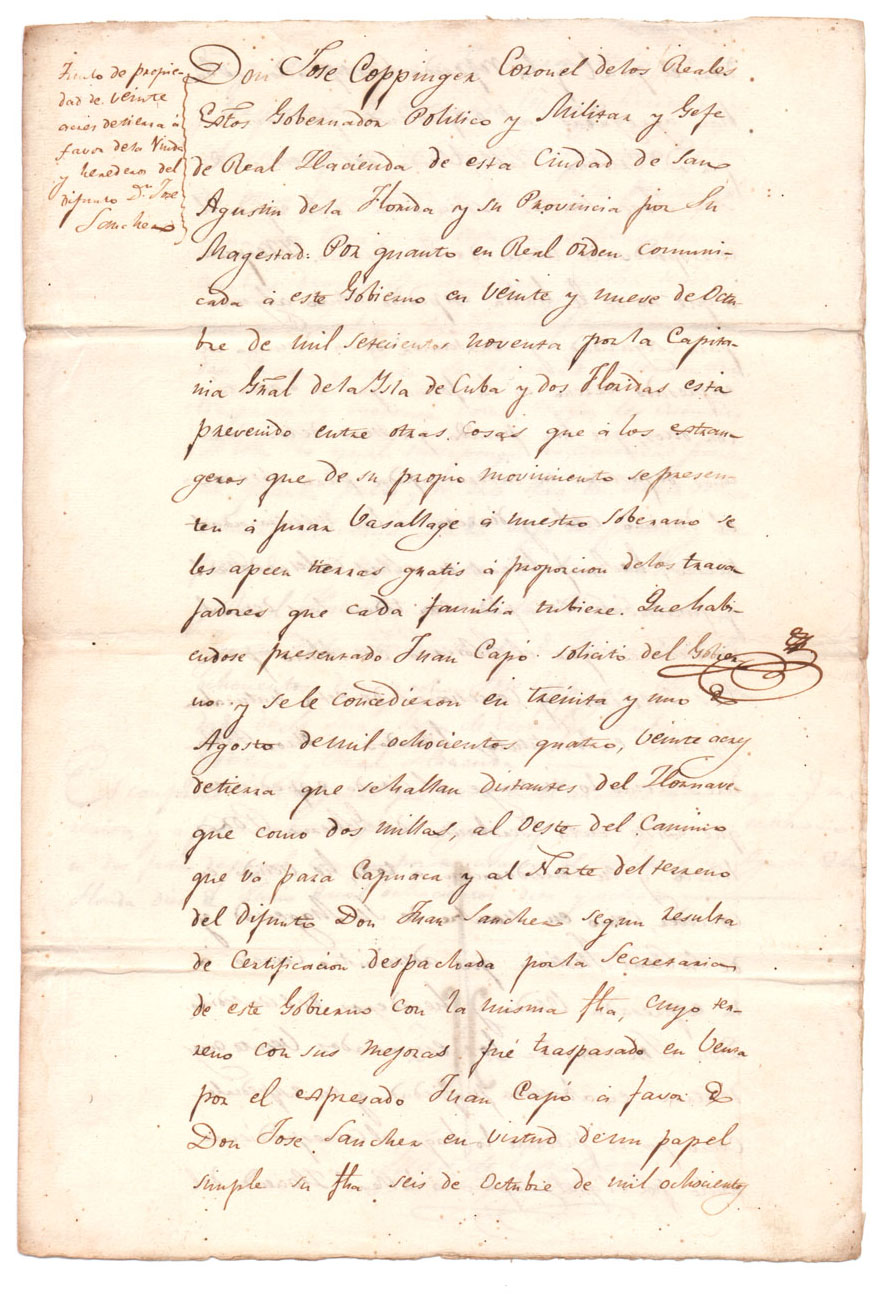 Titulo de propie-
dad de veinte
acres de tierra á
favor de la Viuda
y herederos del
difunto Dn. Jose
Sanchez
Don Jose Coppinger Coronel de los Reales
Extos Gobernador Politico y Militar y Gefe
de Real Hacienda de esta Ciudad de San
Agustin de la Florida y su Provincia por Su
Magestad: Por quanto en Real orden comuni-
cada á este Gobierno en veinte y nueve de Octu-
bre de mil setecientos noventa por la Capita-
nia Gñal de la Ysla de Cuba y dos Floridas está
prevenido entre otras cosas que á los extran-
geros que de su propio movimiento se presen-
ten á jurar Vasallage á nuestro soberano se
les apeen tierras gratis á proporcion de los trava-
jadores que cada familia tubiere. Que habi-
endose presentado Juan Capó solicitó del Gobier-
no y se le concedieron en treinta y uno de
Agosto de mil ochocientos quatro, veinte acres
de tierra que se hallan distantes del Hornave-
que como dos millas, al Oeste del Camino
que vá para Capuaca y al Norte del terreno
del difunto Don Juan Sanchez segun resulta
de Certificacion despachada por la Secretaria
de este Gobierno con la misma fha, cuyo ter-
reno con sus mejoras fué traspasado en venta
por el espresado Juan Capó á favor de
Don Jose Sanchez en virtud de un papel
simple su fha seis de Octubre de mil ochocientos